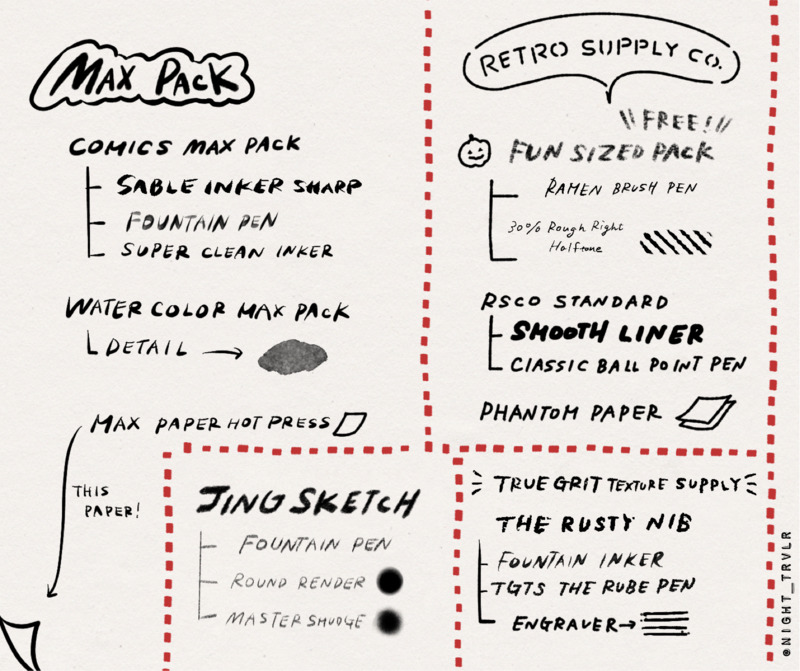 MAX PACK
COMICS MAX PACK
SABLE INKER SHARP
FOUNTAIN PEN
SUPER CLEAN INKER
WATER COLOR MAX PACK
DETAIL
MAX PAPER HOT PRESS
THIS
PAPER!
RETRO SUPPLY CO.
FREE!
FUN SIZED PACK
RAMEN BRUSH PEN
30% Rough Right
Halftone
RSCO STANDARD
SMOOTH LINER
CLASSIC BALL POINT PEN
PHANTOM PAPER
JINGSKETCH
FOUNTAIN PEN
ROUND RENDER
MASTER SMUDGE
TRUE GRIT TEXTURE SUPPLY
THE RUSTY NIB
FOUNTAIN INKER
TGTS THE RUBE PEN
ENGRAVER
@NIGHT_TRVLR